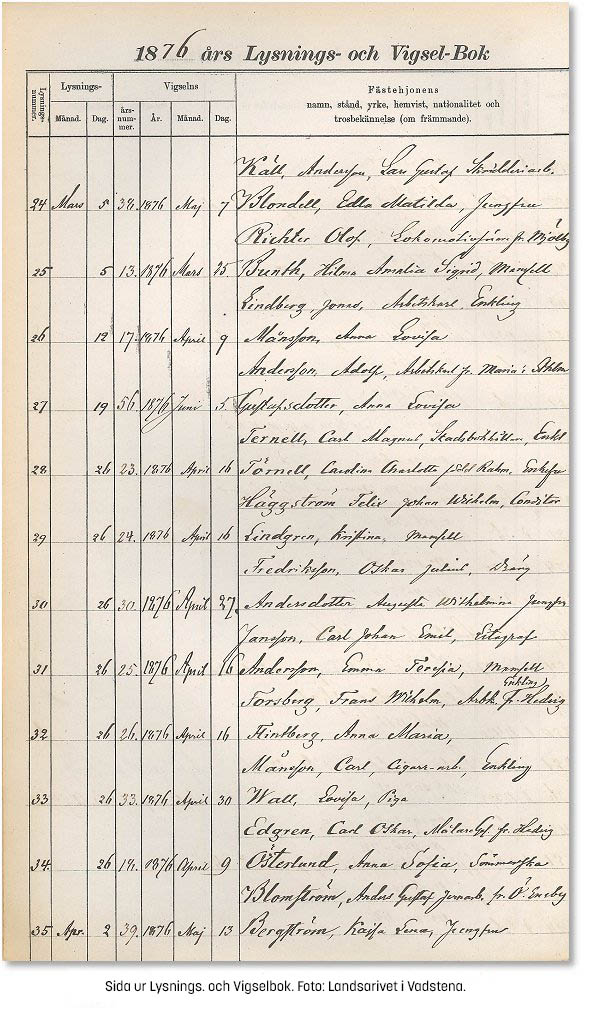 1876 års Lysnings- och Vigsel-Bok
Lysnings-nummer.
Lysnings-
Månad. Dag.
Vigselns
års-nummer. År. Månad. Dag.
Fästehjonens
namn, stånd, yrke, hemvist, nationalitet och
trosbekännelse (om främmande).
Käll, Andersson, Lars Gustaf Skrädderiarb.
24 Mars 5 38. 1876 Maj 7 Blondell, Edla Matilda, Jungfru
Richter Olof, Lokomotivförare fr. Mjölby
25 5 13. 1876 Mars 25. Brenth, Hilma Amalia Sigrid, Mamsell
Lindberg, Jonas, Arbetskarl, Enkling
26 12 17. 1876 April 9 Månsson, Anna Lovisa
Andersson, Adolf, Arbetskarl fr. Maria i
27 19 56. 1876 Juni 5. Gustafsdotter, Anna Lovisa
Ternell, Carl Magnus, Enkl
28 26 23. 1876 April 16 Törnell, Carolina Charlotta född Rahm, Enkefru
Häggström Felix Johan Wilhelm, Conditor
29 26 24. 1876 April 16 Lindgren, Kristina, Mamsell
Fredriksson, Oskar Julius, Dräng
30 26 30. 1876 April 27 Andersdotter Augusta Wilhelmina Jungfru
Jansson, Carl Johan Emil, Litograf
31 26 25. 1876 April 16 Andersson, Emma Teresia, Mamsell
Enkling
Forsberg, Frans Wilhelm, Arbk. fr. Hedvig
32 26 26. 1876 April 16 Flintberg, Anna Maria,
Månsson, Carl, Cigarr-arb., Enkling
33 26 33. 1876 April 30 Wall, Lovisa, Piga
Edgren, Carl Oskar, Målare fr. Hedvig
34. 26 1876 April 9 Österlund, Anna Sofia, Sömmerska
Blomström, Anders Gustaf Jernarb. fr. Ö. Eneby
35 Apr. 2 39. 1876 Maj 13 Bergström, Kajsa Lena, Jungfru
Sida ur Lysnings. och Vigselbok. Foto: Landsarivet i Vadstena.